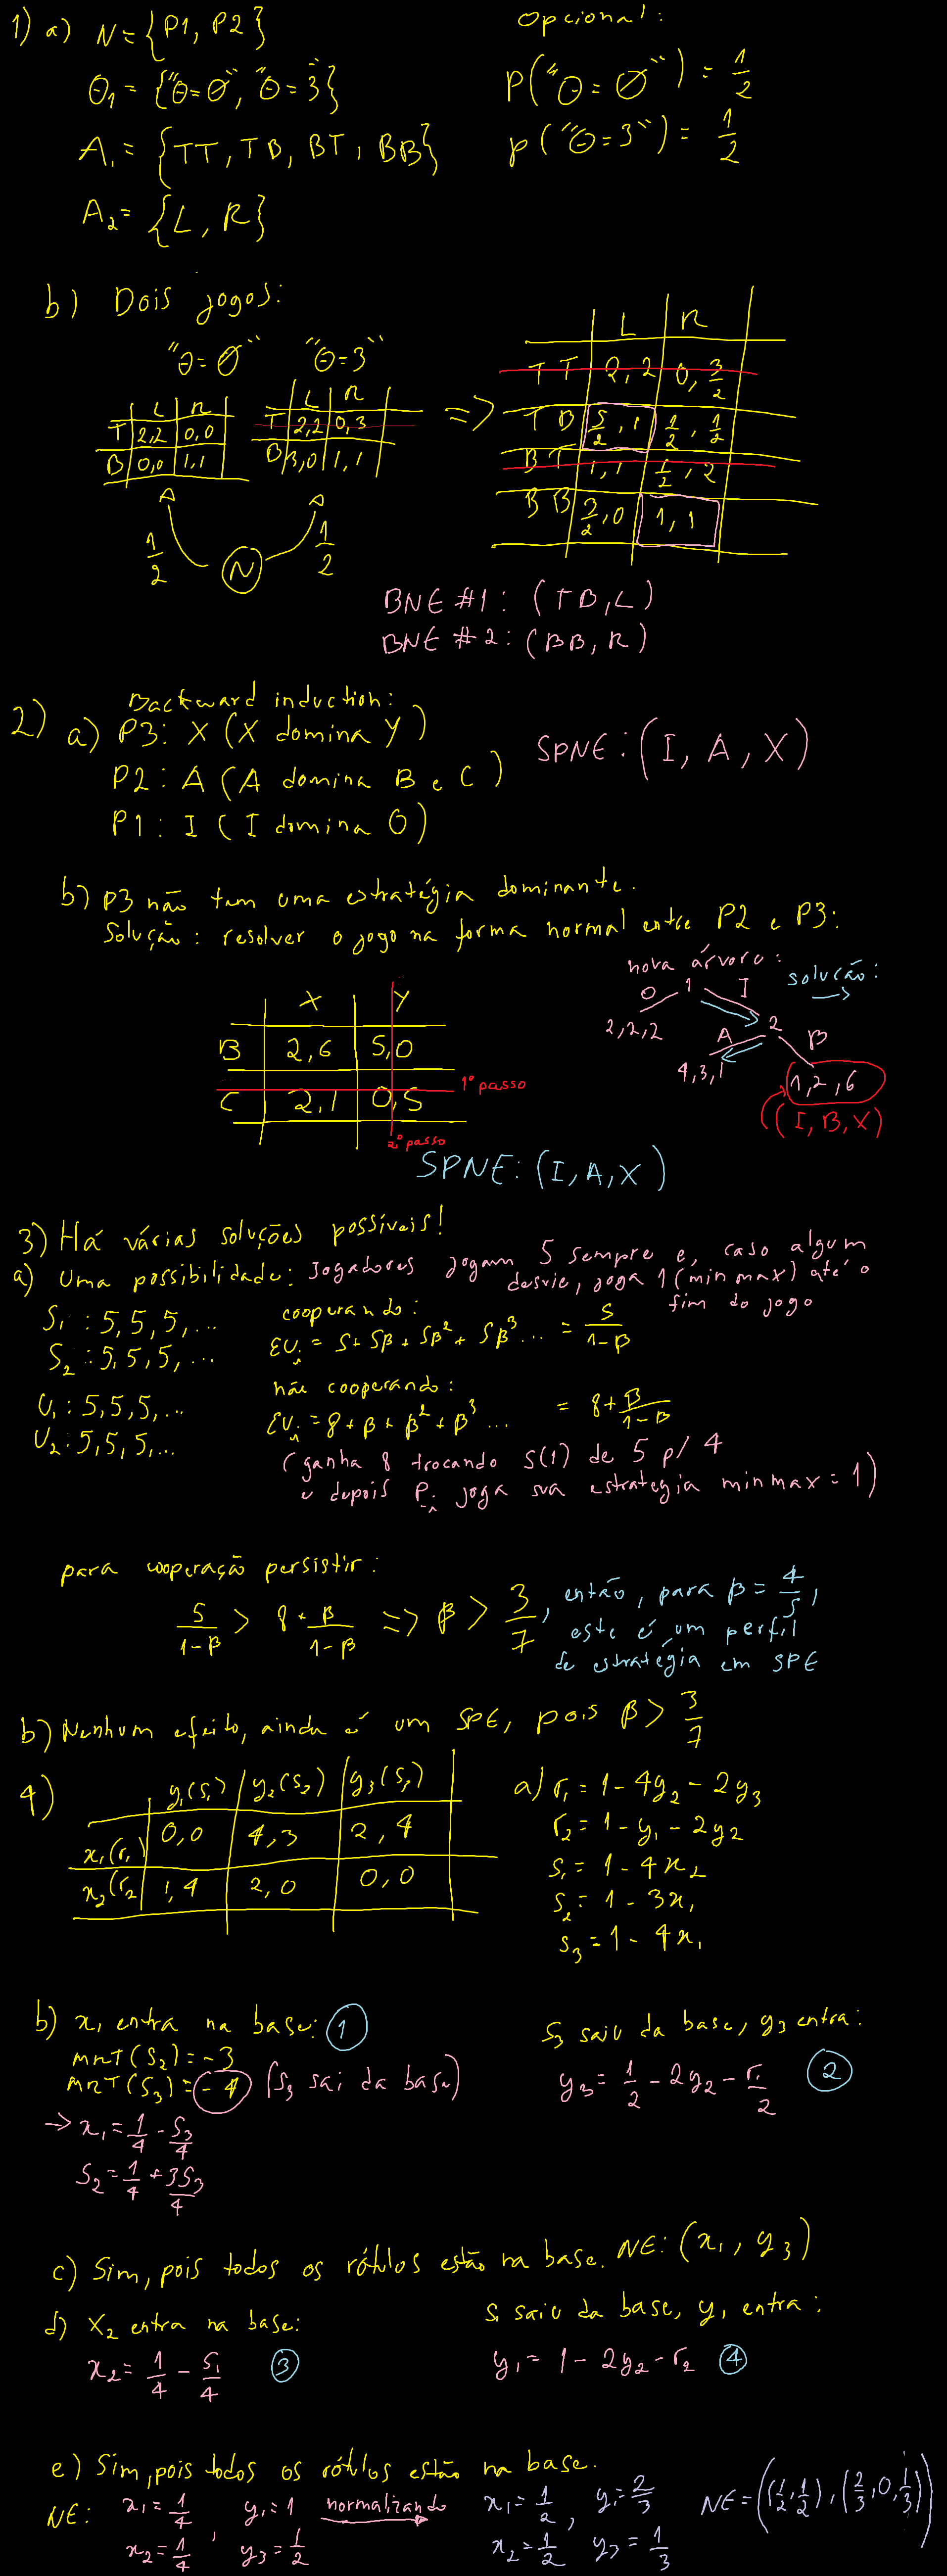 1) a) N = {P1, P2}
Θ₁ = {"Θ=Ø", "Θ=3"}
A₁ = {TT, TB, BT, BB}
A₂ = {L, R}
Opcional:
P("Θ=Ø") = 1/2
P("Θ=3") = 1/2
b) Dois jogos:
"Θ=Ø" "Θ=3"
L R
T 2,2 0,0
B 0,0 1,1
L R
T 2,2 0,3
B 3,0 1,1
A A
1/2 N 1/2
=>
L R
TT 2,2 0,3/2
TB 5/2,1 1/2,1/2
BT 1,1 1/2,2
BB 3/2,0 1,1
BNE #1: (TB,L)
BNE #2: (BB,R)
2) Backward induction:
a) P3: X (X domina Y)
P2: A (A domina B e C)
P1: I (I domina O)
SPNE: (I, A, X)
b) P3 não tem uma estratégia dominante.
Solução: resolver o jogo na forma normal entre P2 e P3:
X Y
B 2,6 5,0
C 2,1 0,5
1º passo
2º passo
nova árvore:
solução:
→
O 1 I
2,2,2
A 2 B
4,3,1
1,2,6
(I,B,X)
SPNE: (I,A,X)
3) Há várias soluções possíveis!
a) Uma possibilidade: Jogadores jogam 5 sempre e, caso algum
desvie, joga 1 (minmax) até o
fim do jogo
S₁: 5,5,5,...
S₂: 5,5,5,...
U₁: 5,5,5,...
U₂: 5,5,5,...
cooperando:
EUᵢ = 5+5β+5β²+5β³... = 5/(1-β)
não cooperando:
EUᵢ = 8+β+β²+β³... = 8+β/(1-β)
(ganha 8 trocando S(1) de 5 p/ 4
e depois P₋ᵢ joga sua estrategia minmax = 1)
para cooperação persistir:
5/(1-β) > 8+β/(1-β) => β > 3/7, então, para β = 4/5,
este é um perfil
de estratégia em SPE
b) Nenhum efeito, ainda é um SPE, pois β > 3/7
4) y₁(s₁) y₂(s₂) y₃(s₁)
x₁(r₁) 0,0 4,3 2,4
x₂(r₂ 1,4 2,0 0,0
a) r₁ = 1-4y₂-2y₃
r₂ = 1-y₁-2y₂
s₁ = 1-4x₂
s₂ = 1-3x₁
s₃ = 1-4x₁
b) x₁ entra na base: 1
MRT(S₂) = -3
MRT(S₃) = -4 (S₃ sai da base)
→ x₁ = 1/4 - S₃/4
S₂ = 1/4 + 3S₃/4
S₃ saiu da base, y₃ entra:
y₃ = 1/2 - 2y₂ - r₁/2 2
c) Sim, pois todos os rótulos estão na base. NE: (x₁, y₃)
d) X₂ entra na base:
x₂ = 1/4 - S₁/4 3
S₁ saiu da base, y₁ entra:
y₁ = 1-2y₂-r₂ 4
e) Sim, pois todos os rótulos estão na base.
NE: x₁ = 1/4, y₁ = 1 normalizando x₁ = 1/2, y₁ = 2/3 NE = ((1/2,1/2),(2/3,0,1/3))
x₂ = 1/4 y₃ = 1/2 x₂ = 1/2 y₃ = 1/3